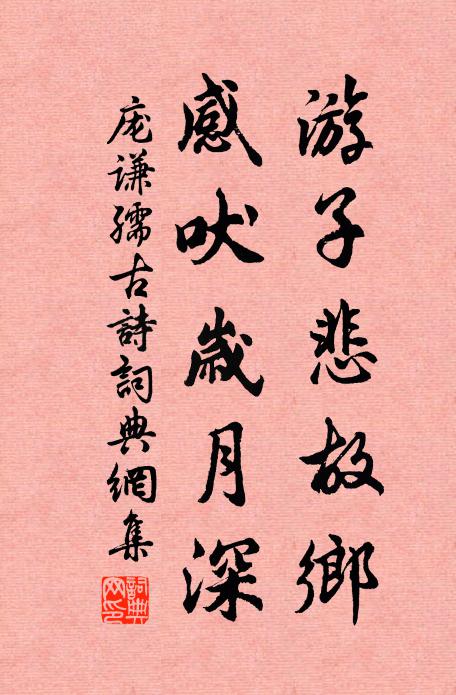 游子悲故鄉
感吠歲月深
庞谦孺古詩詞典網集
詞典網印